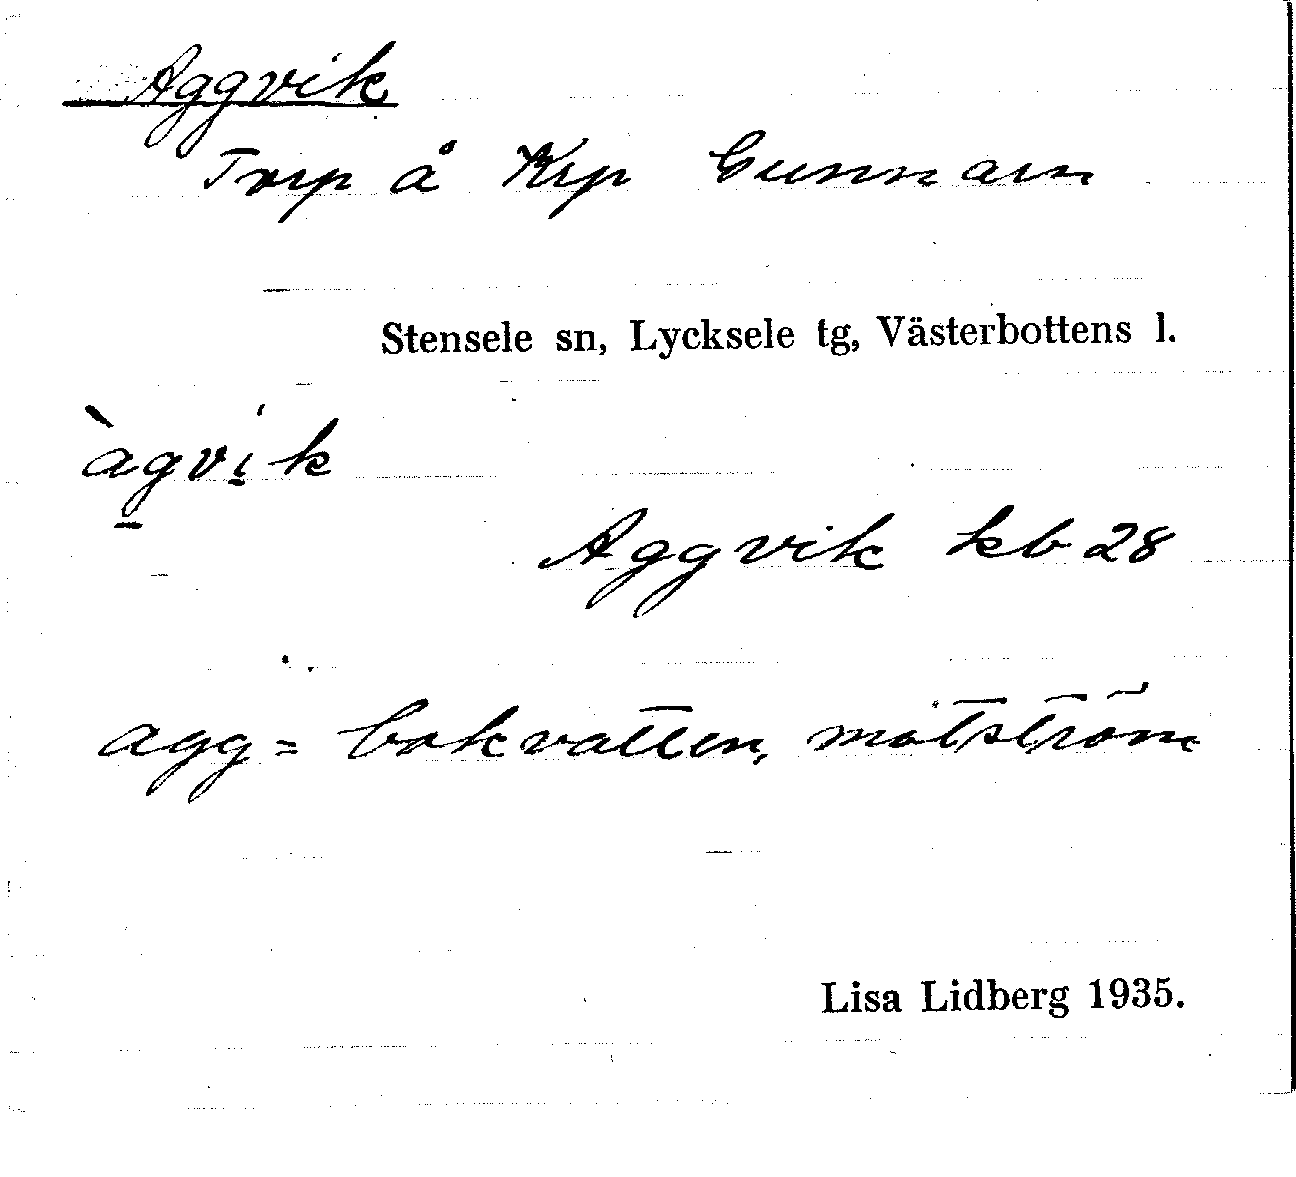 Aggvik
Torp å Krp Gunnarn
Stensele sn, Lycksele tg, Västerbottens l.
àgvik
Aggvik kb 28
agg = bakvatten, motström
Lisa Lidberg 1935.